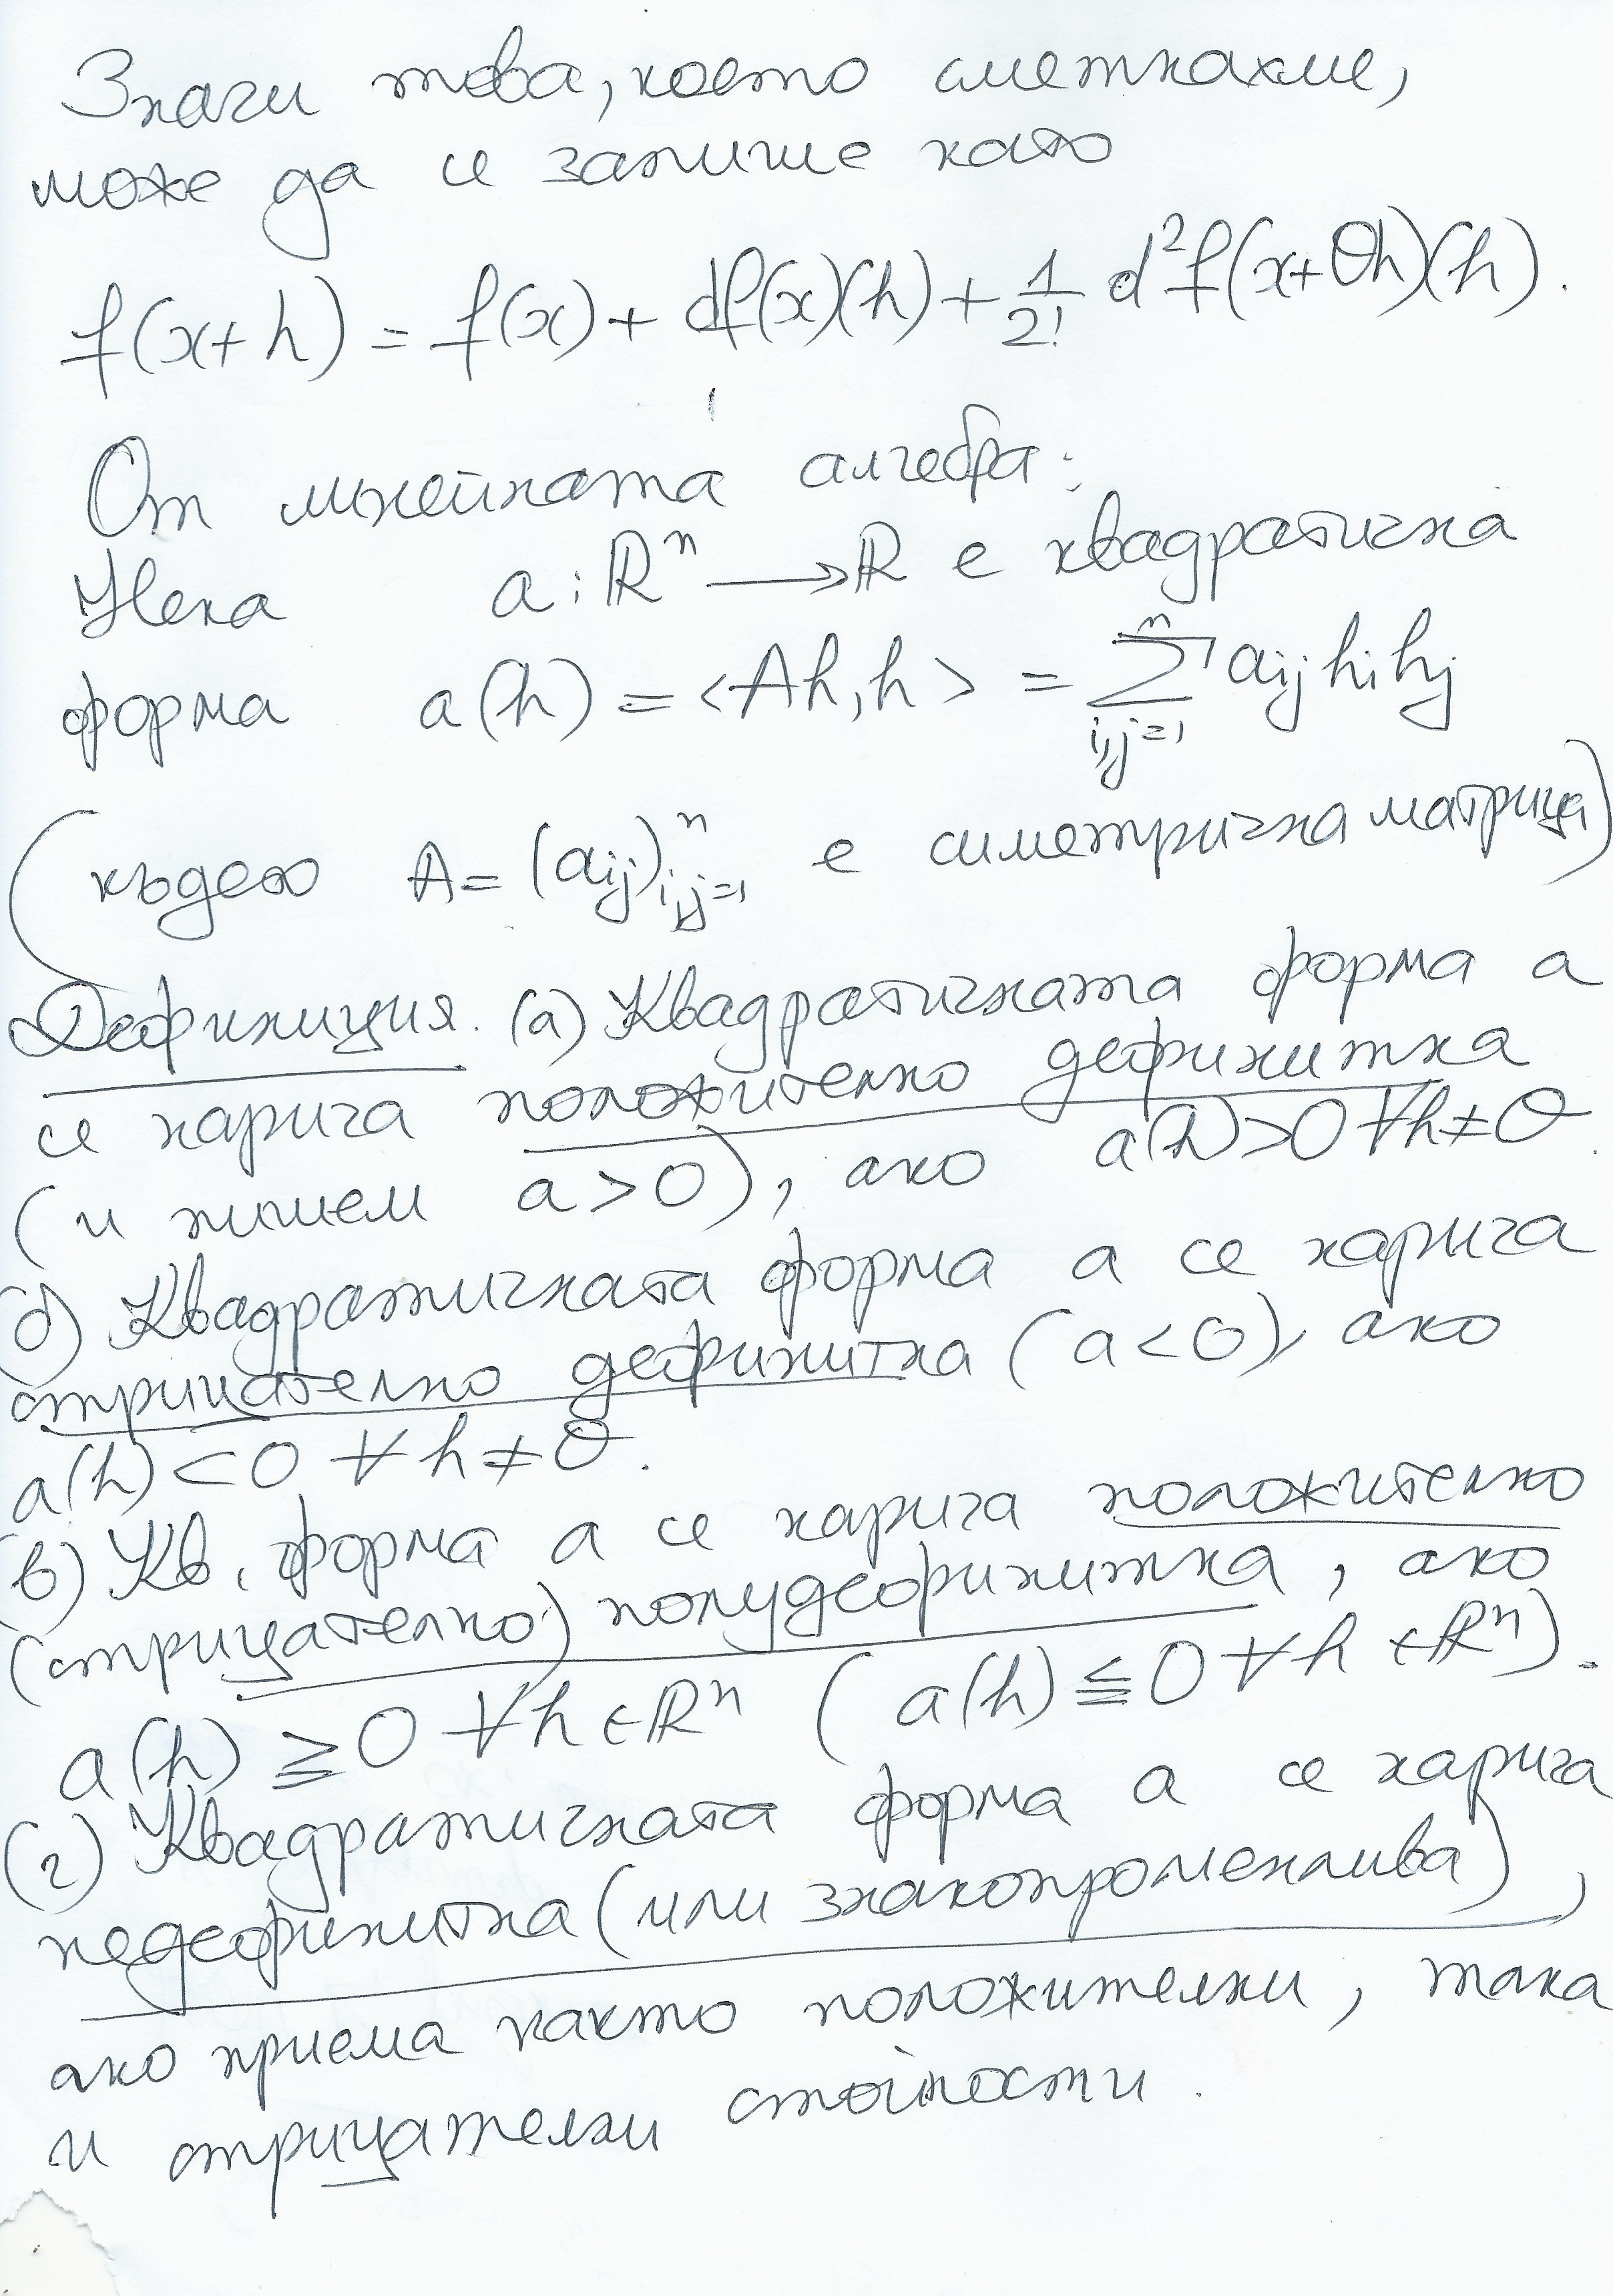 Значи това, което сметнахме,
може да се запише като
f(x+h) = f(x) + df(x)(h) + 1/2! d²f(x+θh)(h).
От линейната алгебра:
Нека a: ℝⁿ → ℝ е квадратична
форма a(h) = <Ah, h> = ∑ⁿᵢ,ⱼ₌₁ aᵢⱼ hᵢ hⱼ
(където A = (aᵢⱼ)ⁿᵢ,ⱼ₌₁ е симетрична матрица)
Дефиниция. (а) Квадратичната форма a
се нарича положително дефинитна
(и пишем a > 0), ако a(h) > 0 ∀h ≠ 0.
(б) Квадратичната форма a се нарича
отрицателно дефинитна (a < 0), ако
a(h) < 0 ∀h ≠ 0.
(в) Кв. форма a се нарича положително
(отрицателно) полудефинитна, ако
a(h) ≧ 0 ∀h ∈ ℝⁿ (a(h) ≦ 0 ∀h ∈ ℝⁿ).
(г) Квадратичната форма a се нарича
недефинитна (или знакопроменлива),
ако приема както положителни, така
и отрицателни стойности.